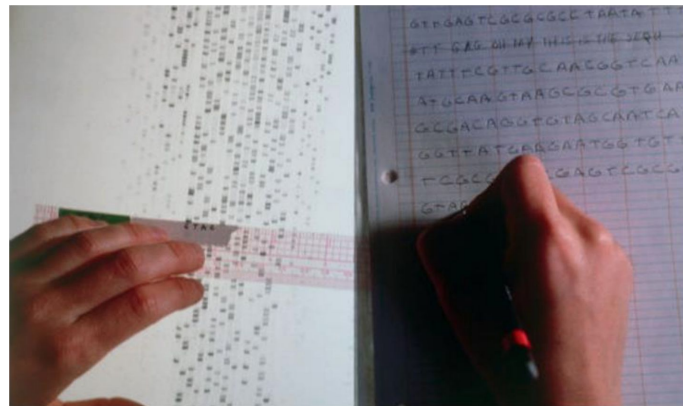 GTAG
GTTGAGTCGCGCGCCTAATATTT
GTT GAG OH HAY THIS IS THE SEQU
TATTTCGTTGCAACGGTCAA
ATGCAAGTAAGCGCGTGAA
GCGACAGGTGTAGCAATCA
GGTTATGAAGAATGGTGTT
TCGCG GAGTCGCG
GTA